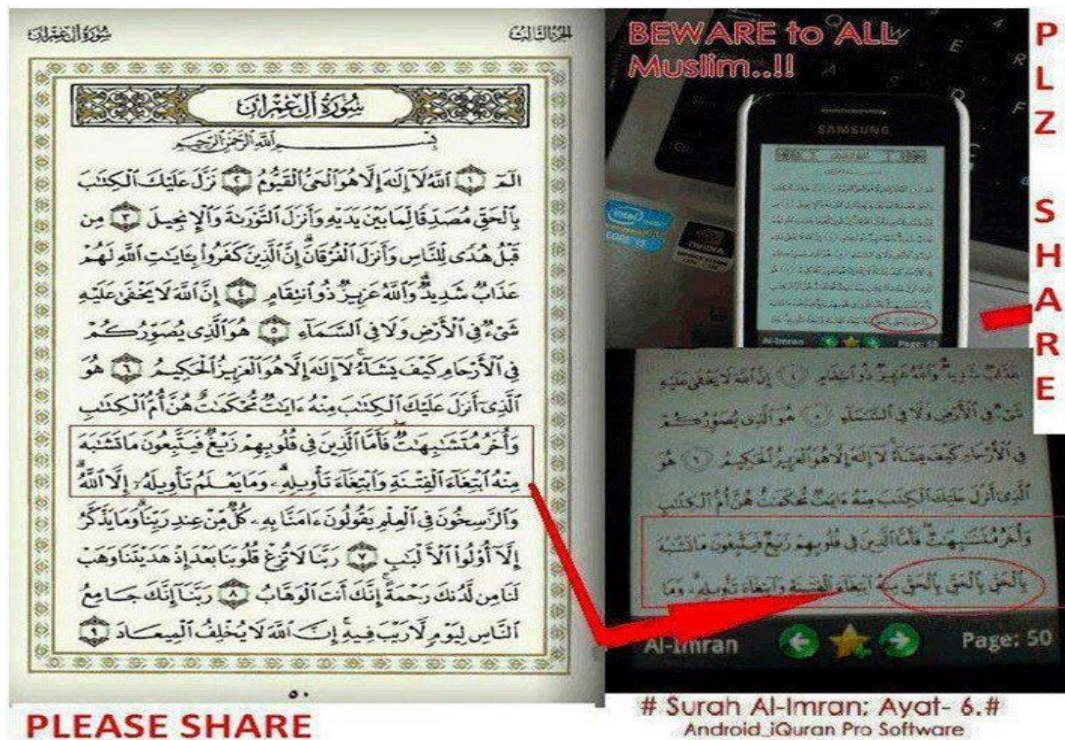 سُورَةُ آلِ عِمْرَانَ
الجُزءُ الثَّالِثُ
سُورَةُ آلِ عِمْرَانَ
بِسْمِ ٱللَّهِ ٱلرَّحْمَٰنِ ٱلرَّحِيمِ
الٓمٓ ١ ٱللَّهُ لَآ إِلَٰهَ إِلَّا هُوَ ٱلْحَىُّ ٱلْقَيُّومُ ٢ نَزَّلَ عَلَيْكَ ٱلْكِتَٰبَ
بِٱلْحَقِّ مُصَدِّقًا لِّمَا بَيْنَ يَدَيْهِ وَأَنزَلَ ٱلتَّوْرَىٰةَ وَٱلْإِنجِيلَ ٣ مِن
قَبْلُ هُدًى لِّلنَّاسِ وَأَنزَلَ ٱلْفُرْقَانَ ۗ إِنَّ ٱلَّذِينَ كَفَرُوا۟ بِـَٔايَٰتِ ٱللَّهِ لَهُمْ
عَذَابٌ شَدِيدٌ ۗ وَٱللَّهُ عَزِيزٌ ذُو ٱنتِقَامٍ ٤ إِنَّ ٱللَّهَ لَا يَخْفَىٰ عَلَيْهِ
شَىْءٌ فِى ٱلْأَرْضِ وَلَا فِى ٱلسَّمَآءِ ٥ هُوَ ٱلَّذِى يُصَوِّرُكُمْ
فِى ٱلْأَرْحَامِ كَيْفَ يَشَآءُ ۚ لَآ إِلَٰهَ إِلَّا هُوَ ٱلْعَزِيزُ ٱلْحَكِيمُ ٦ هُوَ
ٱلَّذِىٓ أَنزَلَ عَلَيْكَ ٱلْكِتَٰبَ مِنْهُ ءَايَٰتٌ مُّحْكَمَٰتٌ هُنَّ أُمُّ ٱلْكِتَٰبِ
وَأُخَرُ مُتَشَٰبِهَٰتٌ ۖ فَأَمَّا ٱلَّذِينَ فِى قُلُوبِهِمْ زَيْغٌ فَيَتَّبِعُونَ مَا تَشَٰبَهَ
مِنْهُ ٱبْتِغَآءَ ٱلْفِتْنَةِ وَٱبْتِغَآءَ تَأْوِيلِهِۦ ۗ وَمَا يَعْلَمُ تَأْوِيلَهُۥٓ إِلَّا ٱللَّهُ ۗ
وَٱلرَّٰسِخُونَ فِى ٱلْعِلْمِ يَقُولُونَ ءَامَنَّا بِهِۦ كُلٌّ مِّنْ عِندِ رَبِّنَا ۗ وَمَا يَذَّكَّرُ
إِلَّآ أُو۟لُوا۟ ٱلْأَلْبَٰبِ ٧ رَبَّنَا لَا تُزِغْ قُلُوبَنَا بَعْدَ إِذْ هَدَيْتَنَا وَهَبْ
لَنَا مِن لَّدُنكَ رَحْمَةً ۚ إِنَّكَ أَنتَ ٱلْوَهَّابُ ٨ رَبَّنَآ إِنَّكَ جَامِعُ
ٱلنَّاسِ لِيَوْمٍ لَّا رَيْبَ فِيهِ ۚ إِنَّ ٱللَّهَ لَا يُخْلِفُ ٱلْمِيعَادَ ٩
٥٠
PLEASE SHARE
BEWARE to ALL
Muslim..!!
SAMSUNG
intel
CORE i5
NVIDIA
Al-Imran Page: 50
PLZ SHARE
عَذَابٌ شَدِيدٌ ۗ وَٱللَّهُ عَزِيزٌ ذُو ٱنتِقَامٍ ٤ إِنَّ ٱللَّهَ لَا يَخْفَىٰ عَلَيْهِ
شَىْءٌ فِى ٱلْأَرْضِ وَلَا فِى ٱلسَّمَآءِ ٥ هُوَ ٱلَّذِى يُصَوِّرُكُمْ
فِى ٱلْأَرْحَامِ كَيْفَ يَشَآءُ ۚ لَآ إِلَٰهَ إِلَّا هُوَ ٱلْعَزِيزُ ٱلْحَكِيمُ ٦ هُوَ
ٱلَّذِىٓ أَنزَلَ عَلَيْكَ ٱلْكِتَٰبَ مِنْهُ ءَايَٰتٌ مُّحْكَمَٰتٌ هُنَّ أُمُّ ٱلْكِتَٰبِ
وَأُخَرُ مُتَشَٰبِهَٰتٌ ۖ فَأَمَّا ٱلَّذِينَ فِى قُلُوبِهِمْ زَيْغٌ فَيَتَّبِعُونَ مَا تَشَٰبَهَ
بِٱلْحَقِّ بِٱلْحَقِّ بِٱلْحَقِّ مِنْهُ ٱبْتِغَآءَ ٱلْفِتْنَةِ وَٱبْتِغَآءَ تَأْوِيلِهِۦ ۗ وَمَا
Al-Imran Page: 50
# Surah Al-Imran; Ayat- 6.#
Android_iQuran Pro Software